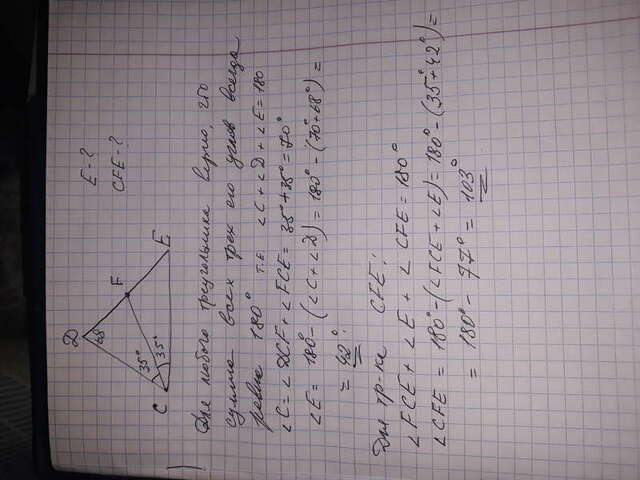 D
68
E - ?
F
CFE - ?
35°
C
35°
E
Для любого треугольника верно, что
сумма всех трех его углов всегда
равна 180° т.е ∠C + ∠D + ∠E = 180
∠C = ∠DCF + ∠FCE = 35° + 35° = 70°
∠E = 180° - (∠C + ∠D) = 180° - (70° + 68°) =
= 42°.
Для тр-ка CFE:
∠FCE + ∠E + ∠CFE = 180°
∠CFE = 180° - (∠FCE + ∠E) = 180° - (35° + 42°) =
= 180° - 77° = 103°